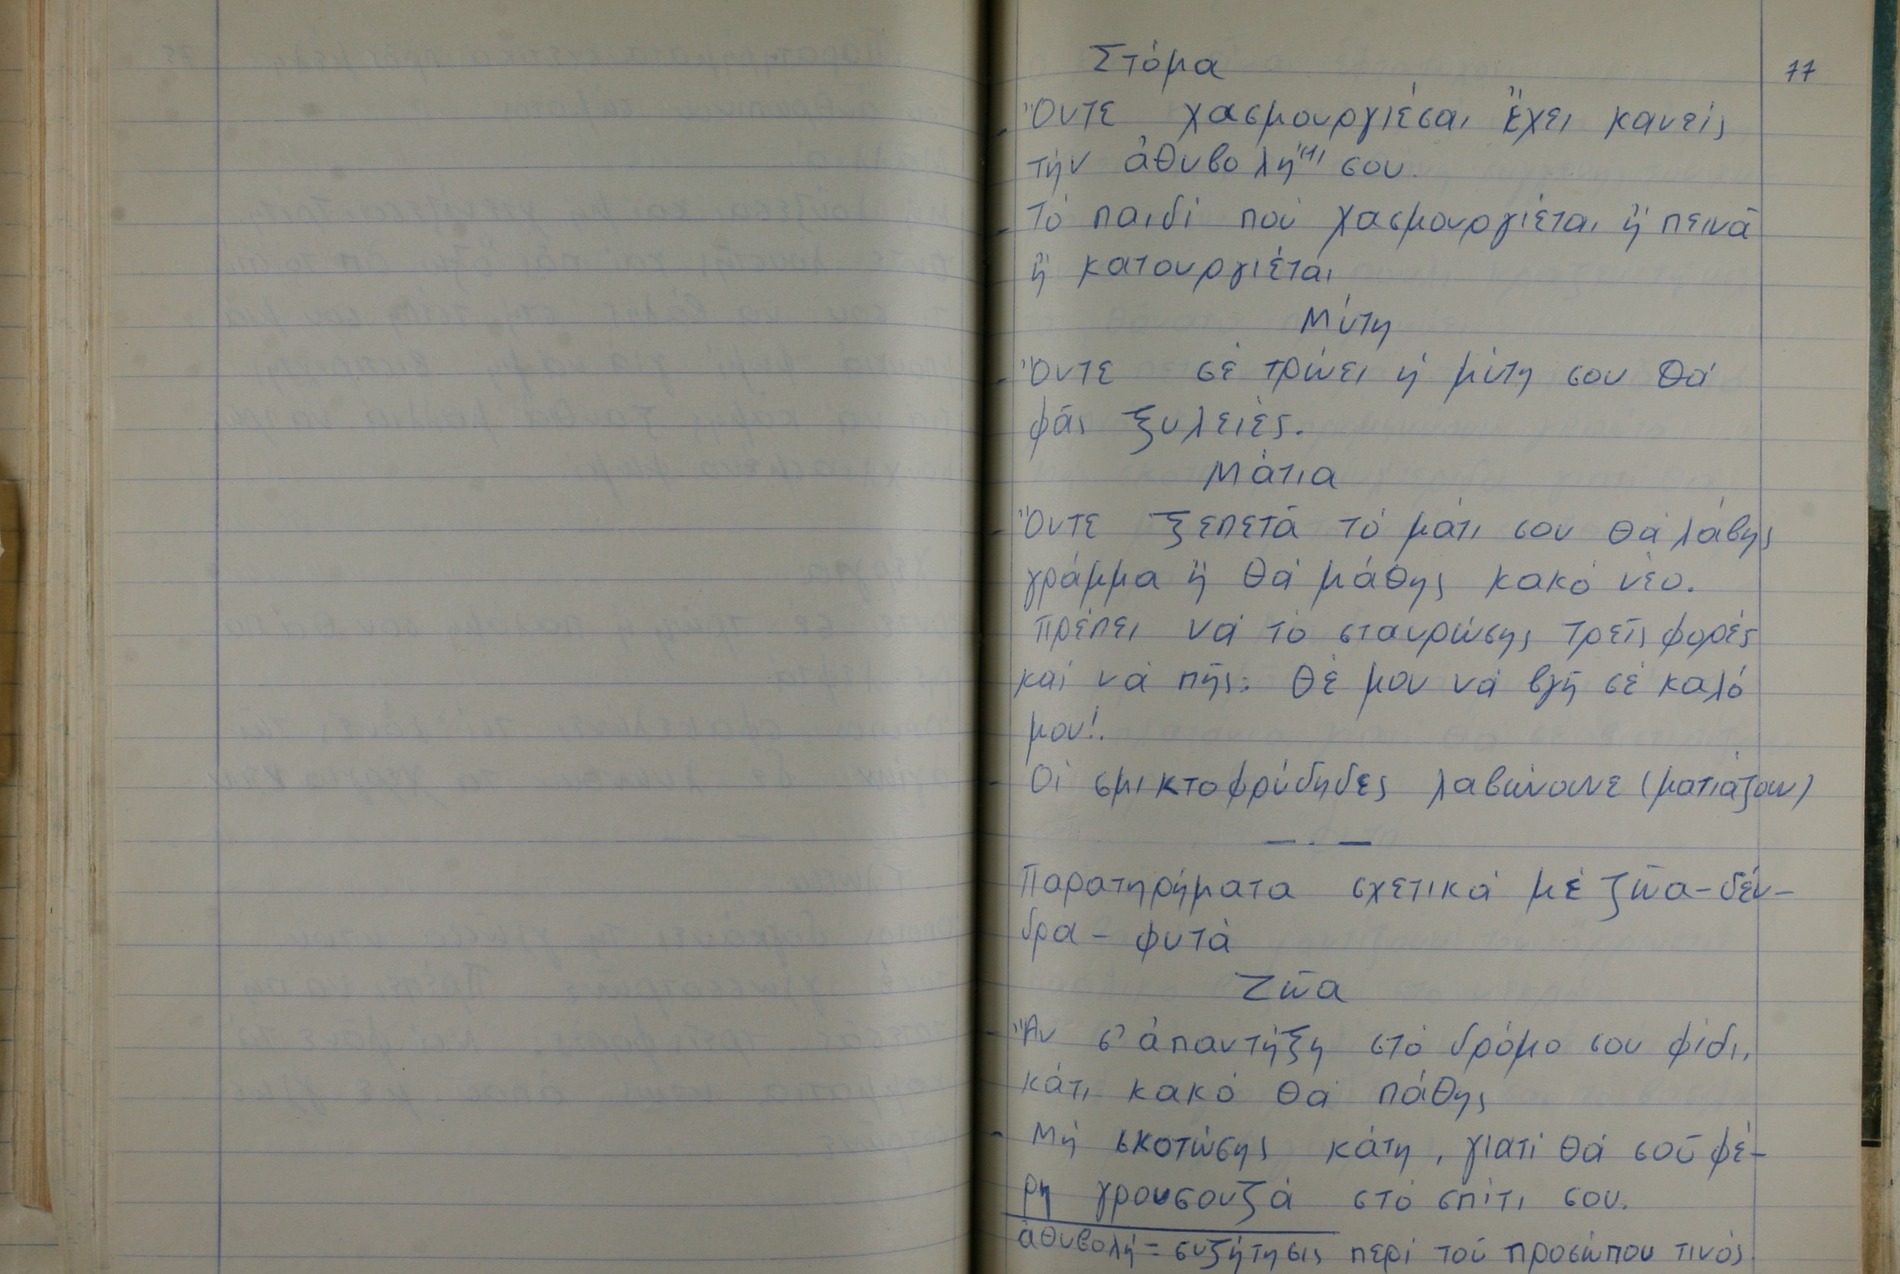 Στόμα
77
- Ὄντε χασμουργιέσαι ἔχει κανείς
τήν ἀθυβολή(1) σου.
- Τό παιδί πού χασμουργιέται ἤ πεινᾶ
ἤ κατουργιέται
Μύτη
- Ὄντε σέ τρώει ἡ μύτη σου θά
φᾶς ξυλειές.
Μάτια
- Ὄντε ξεπετᾶ τό μάτι σου θά λάβης
γράμμα ἤ θά μάθης κακό νέο.
Πρέπει νά τό σταυρώσης τρεῖς φορές
καί νά πῆς: Θέ μου νά βγῆ σέ καλό
μου!.
- Οἱ σμικτοφρύδηδες λαβώνουνε (ματιάζουν)
— . —
Παρατηρήματα σχετικά μέ ζῶα-δέν-
δρα - φυτά
Ζῶα
- Ἄν σ' ἀπαντήξη στό δρόμο σου φίδι,
κάτι κακό θά πάθης
- Μή σκοτώσης κάτη, γιατί θά σοῦ φέ-
ρη γρουσουζά στό σπίτι σου.
ἀθυβολή = συζήτησις περί τοῦ προσώπου τινός.